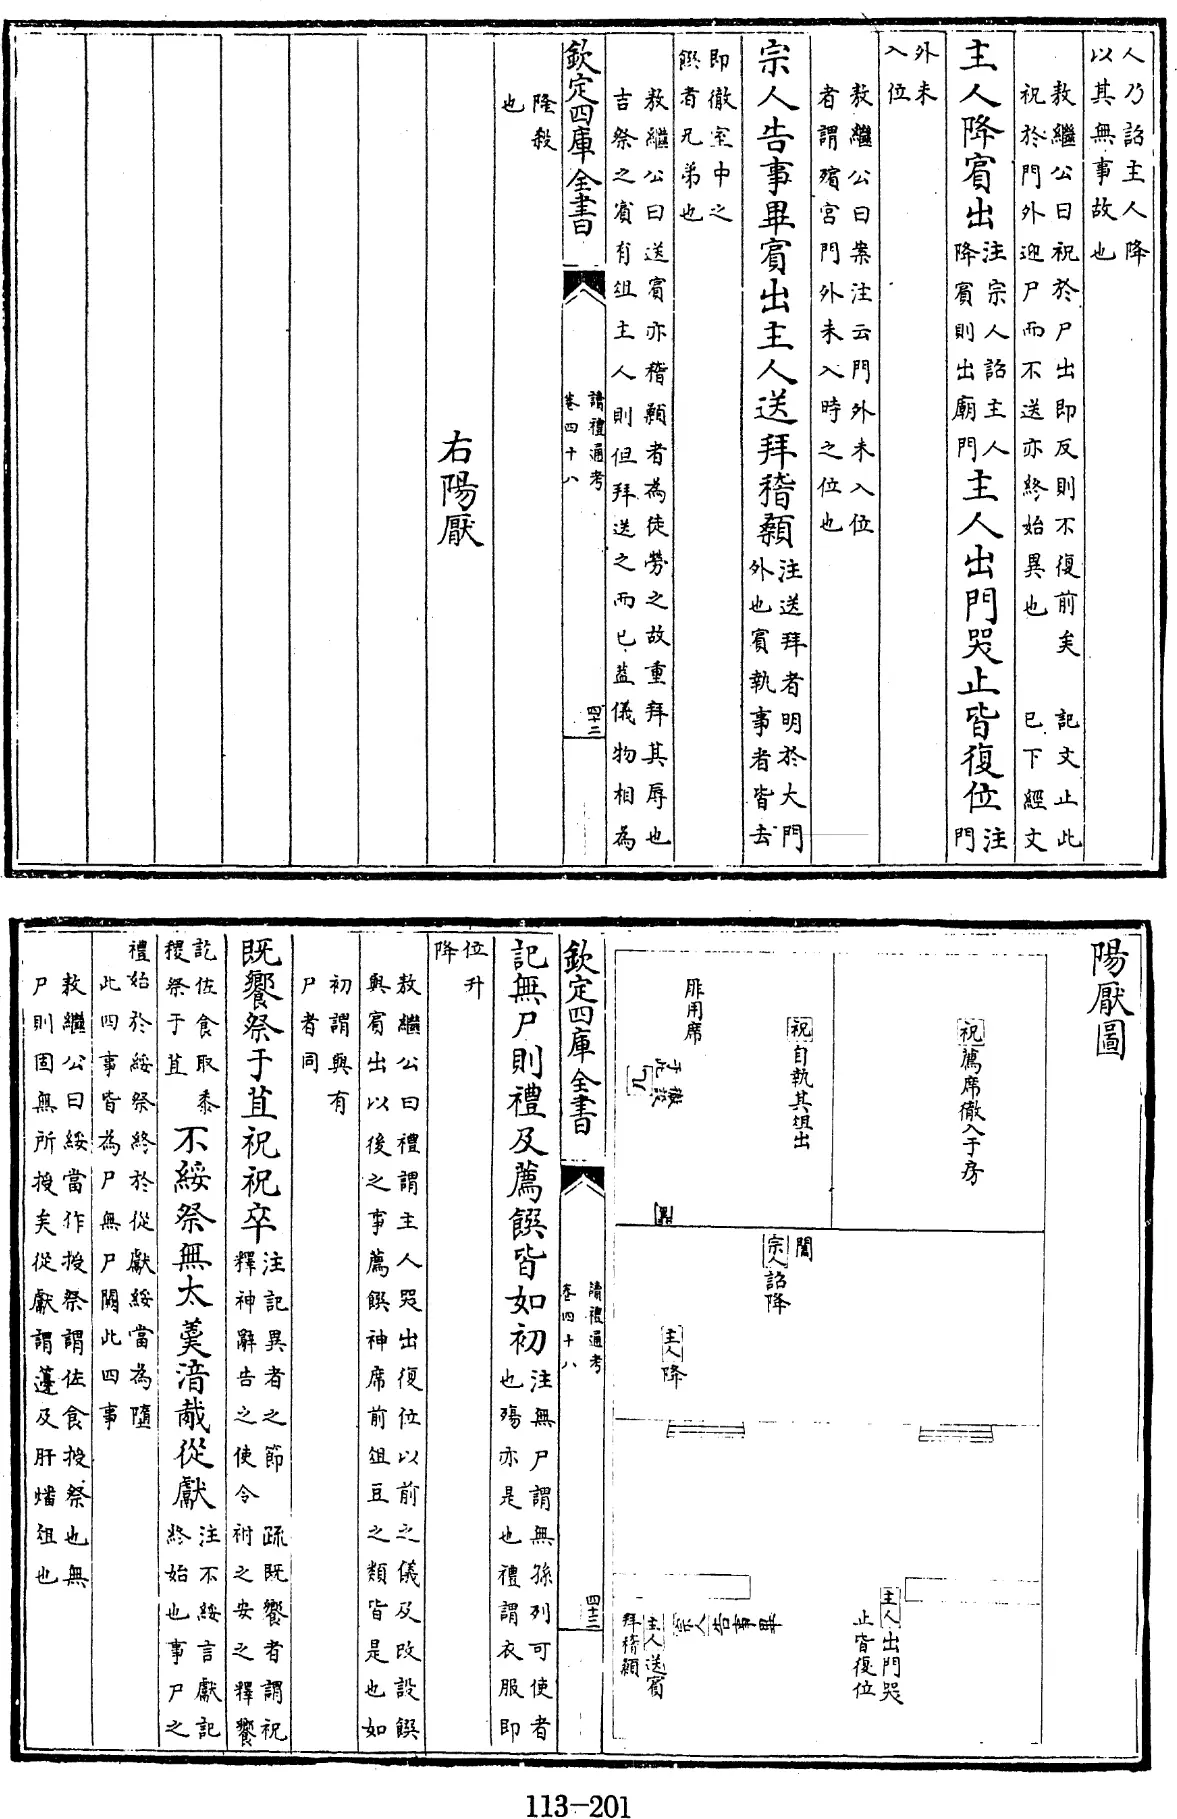 人乃詔主人降
以其無事故也
敖繼公曰祝於尸出即反則不復前矣　記文止此
祝於門外迎尸而不送亦終始異也　已下經文
主人降賓出注宗人詔主人降賓則出廟門主人出門哭止皆復位注門
外未
入位
敖繼公曰案注云門外未入位
者謂殯宮門外未入時之位也
宗人告事畢賓出主人送拜稽顙注送拜者明於大門外也賓執事者皆去
即徹室中之
餕者兄弟也
敖繼公曰送賓亦稽顙者為徒勞之故重拜其辱也
吉祭之賓有俎主人則但拜送之而已葢儀物相為
隆殺
也
欽定四庫全書
讀禮通考
卷四十八
四十二
右陽厭
陽厭圖
祝薦席徹入于房
祝自執其俎出
厞用席
几
閤
宗人詔降
主人降
主人出門哭
止皆復位
宗人告事畢
主人送賓
拜稽顙
欽定四庫全書
讀禮通考
卷四十八
四十三
記無尸則禮及薦饌皆如初注無尸謂無孫列可使者也殤亦是也禮謂衣服即
位升
降
敖繼公曰禮謂主人哭出復位以前之儀及改設饌
與賓出以後之事薦饌神席前俎豆之類皆是也如
初謂與有
尸者同
既饗祭于苴祝祝卒注記異者之節　疏既饗者謂祝
釋神辭告之使令祔之安之釋饗
訖佐食取黍
稷祭于苴　不綏祭無太羹湆胾從獻注不綏言獻記終始也事尸之
禮始於綏祭終於從獻綏當為隋
此四事皆為尸無尸闕此四事
敖繼公曰綏當作挼祭謂佐食挼祭也無
尸則固無所挼矣從獻謂籩及肝燔俎也
113-201